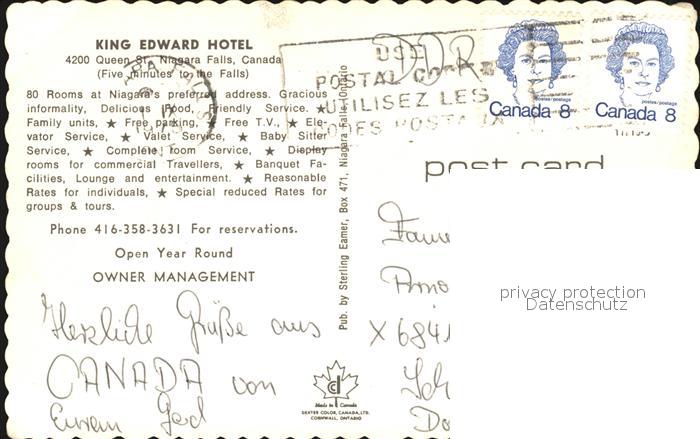 KING EDWARD HOTEL
4200 Queen St. Niagara Falls, Canada
(Five minutes to the Falls)
80 Rooms at Niagara's preferred address. Gracious
informality, Delicious Food, Friendly Service. ★
Family units, ★ Free parking, ★ Free T.V., ★ Ele-
vator Service, ★ Valet Service, ★ Baby Sitter
Service, ★ Complete room Service, ★ Display
rooms for commercial Travellers, ★ Banquet Fa-
cilities, Lounge and entertainment. ★ Reasonable
Rates for individuals, ★ Special reduced Rates for
groups & tours.
Phone 416-358-3631 For reservations.
Open Year Round
OWNER MANAGEMENT
Herzliche Grüße aus
CANADA von
Eurem Gerd
Pub. by Sterling Eamer, Box 471, Niagara Falls, Ontario
Made in Canada
DEXTER COLOR, CANADA, LTD.
CORNWALL, ONTARIO
USE
POSTAL CODES
UTILISEZ LES
CODES POSTAUX
DDR
postes/postage
Canada 8
postes/postage
Canada 8
post card
Fam
Arno
X 684
Sch
Do
privacy protection
Datenschutz